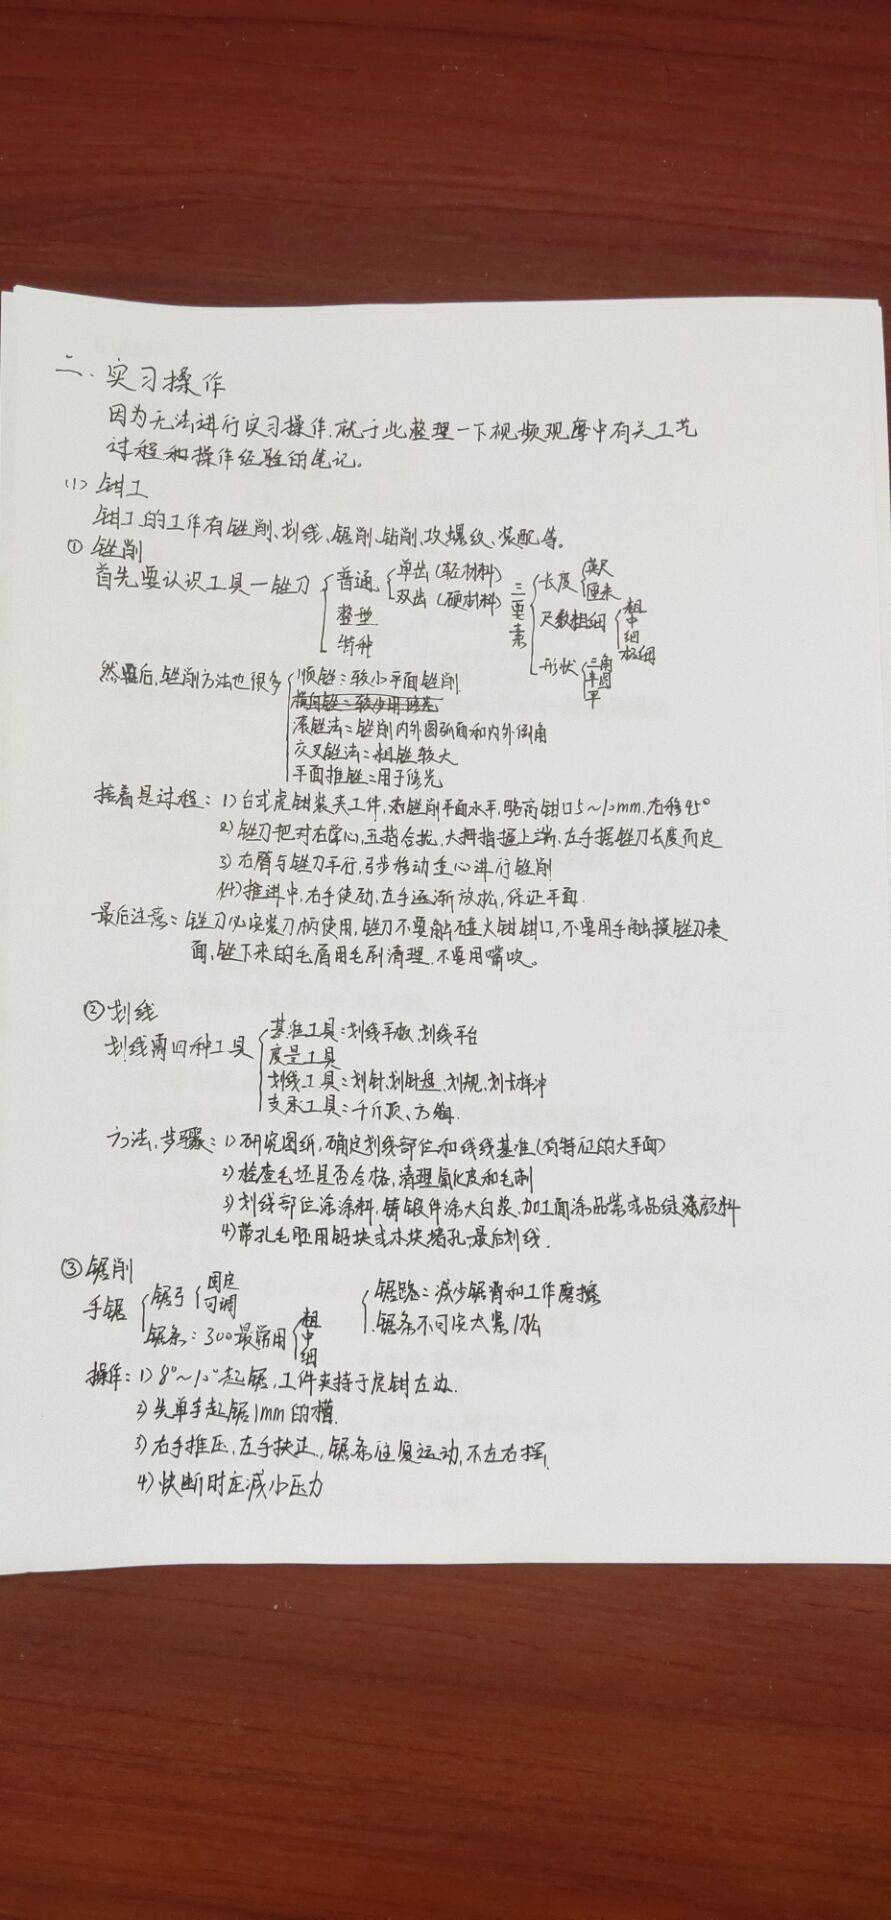 二、实习操作
因为无法进行实习操作,就于此整理一下视频观摩中有关工艺
过程和操作经验的笔记。
(1) 钳工
钳工的工作有锉削、划线、锯削、钻削、攻螺纹、装配等。
① 锉削
首先要认识工具—锉刀
普通
单齿(轻材料)
双齿(硬材料)
整型
特种
三要素
长度
英尺
厘米
尺数粗细
粗
中
细
极细
形状
三角
半圆
平
然后,锉削方法也很多
顺锉:较小平面锉削
横向锉:较少用修光
滚锉法:锉削内外圆弧面和内外倒角
交叉锉法:粗锉较大
平面推锉:用于修光
接着是过程:1)台式虎钳装夹工件,锉削平面水平,略高钳口5~10mm,右移45°
2)锉刀把对右掌心,五指合拢,大拇指握上端,左手据锉刀长度而定
3)右臂与锉刀平行,弓步移动重心进行锉削
(4)推进中,右手使劲,左手逐渐放松,保证平面.
最后注意:锉刀必安装刀柄使用,锉刀不要触碰火钳钳口,不要用手触摸锉刀表
面,锉下来的毛屑用毛刷清理,不要用嘴吹。
② 划线
划线需四种工具
基准工具:划线平板,划线平台
度量工具
划线工具:划针,划针盘,划规,划卡样冲
支承工具:千斤顶、方箱.
方法,步骤:1)研究图纸,确定划线部位和线线基准(有特征的大平面)
2)检查毛坯是否合格,清理氧化皮和毛刺
3)划线部位涂涂料,铸锻件涂大白浆,加工面涂品紫或品绿颜料
4)带孔毛胚用铅块或木块堵孔,最后划线.
③ 锯削
手锯
锯弓
固定
可调
锯条:300最常用
粗
中
细
锯路:减少锯背和工作磨擦
锯条不可安太紧/松
操作:1)8°~10°起锯,工件夹持于虎钳左边.
2)先单手起锯1mm的槽.
3)右手推压,左手扶正,锯条往复运动,不左右摆.
4)快断时应减小压力